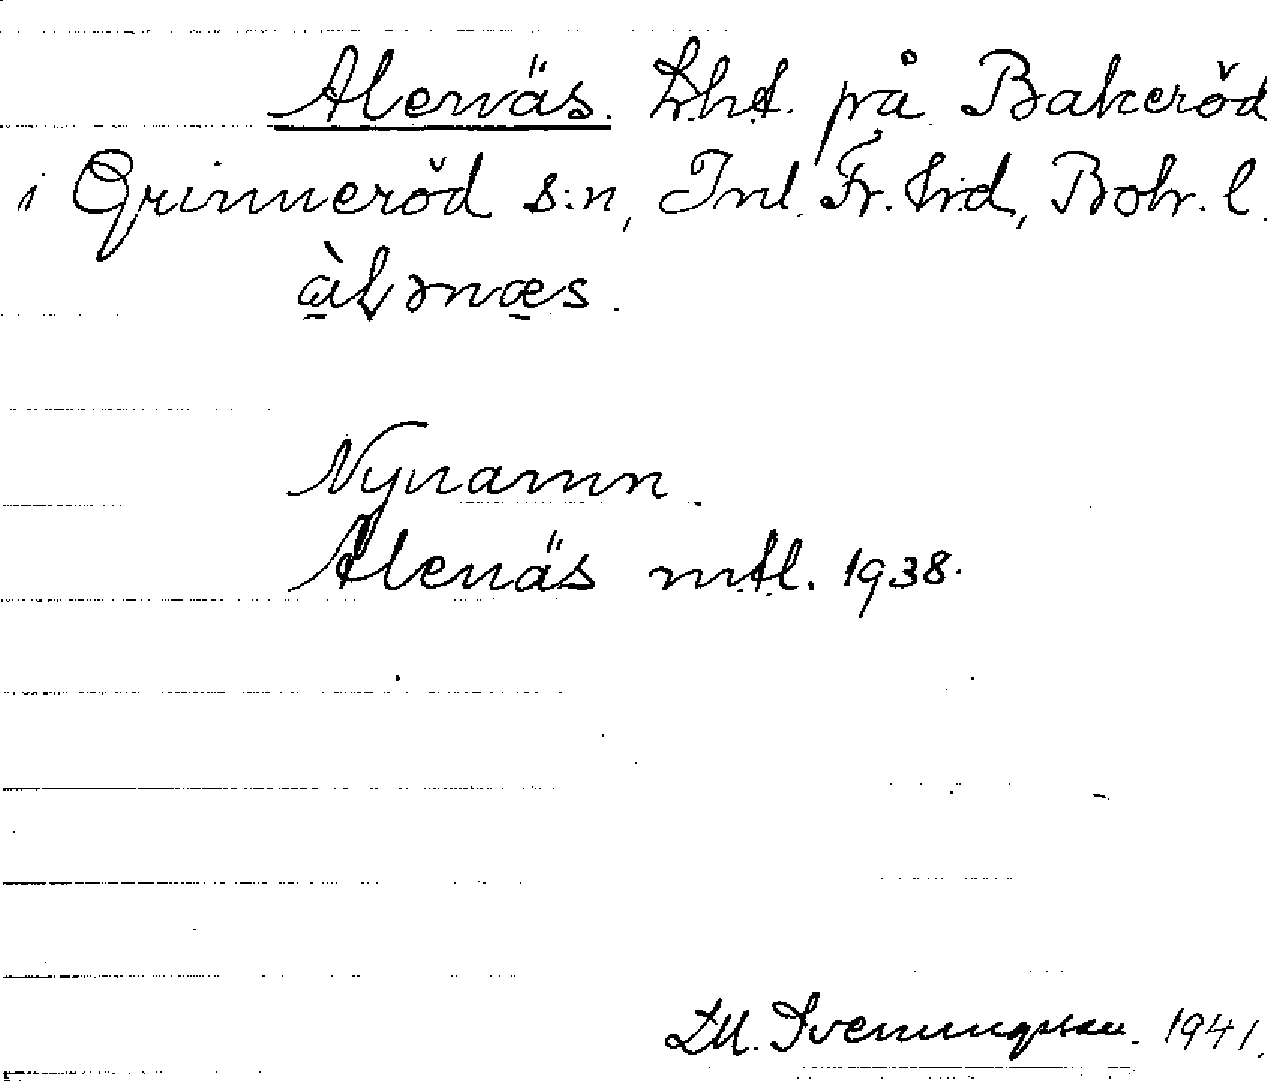 Alenäs. Lht. på Bakeröd
i Grinneröd s:n, Inl. Fr. hrd, Boh. l.
àlənæs.
Nynamn.
Alenäs mtl. 1938.
D.M. Svenungsson. 1941.